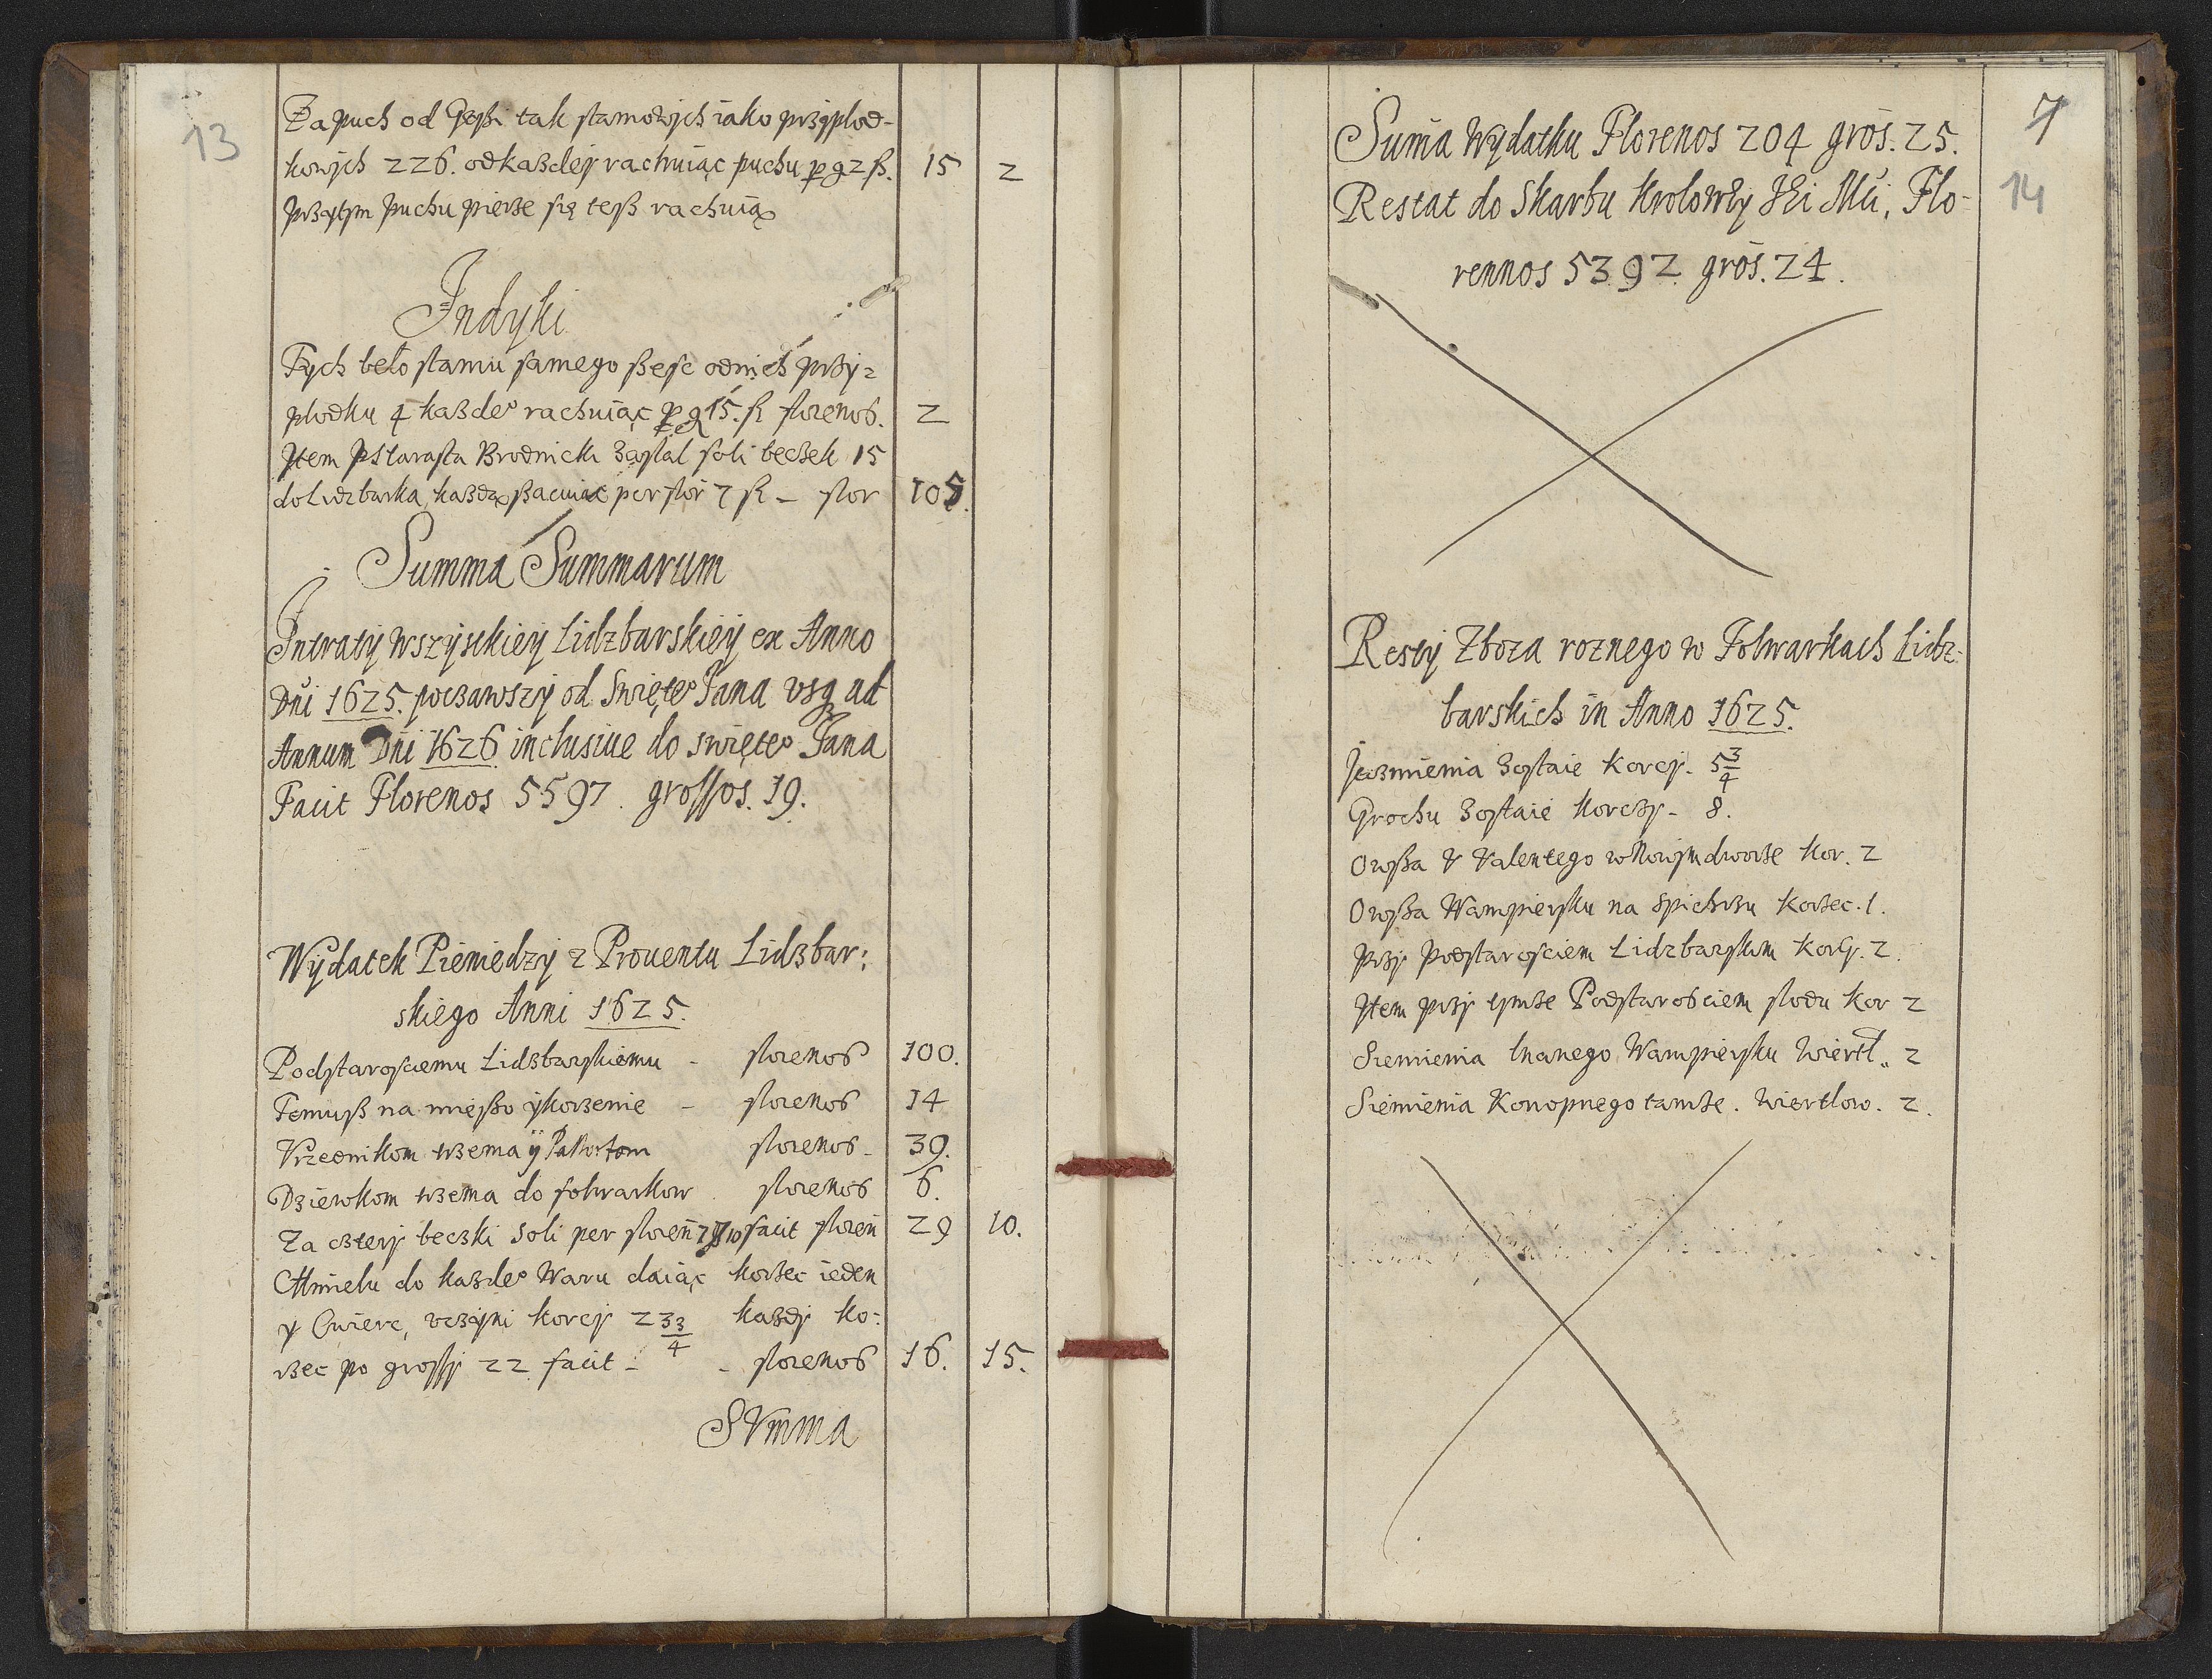 13
Za puch od Gęßi tak stamowych iako przypłod-
kowych 226. od kaßdey rachuiąc puchu p g 2 ß. 15 2
przytym puchu pierze się teß rachuią
Indyki
Tych beło stamu samego ßesc od nich przy-
płodku 4 kaßde° rachuiąc p g 15. ß florenos. 2
Item P Starasta Brodnicki zasłal soli beczek 15
do Lidzbarka, kaßdą ßacuiąc per flor 7 ß - flor 105.
Summa Summarum
Intraty wszystkiey Lidzbarskiey ex Anno
Dni 1625. poczawszy od Swięte° Jana usq ad
Annum Dni 1626 inclusiue do swięte° Jana
Facit Florenos 5597. grossos. 19.
Wydatek Pieniedzy z Prouentu Lidzbar:
skiego Anni 1625.
Podstarosciemu Lidzbarskiemu - florenos 100.
Temuß na mięßo y korzenie - florenos 14
Vrzednikom trzema y Pastortom florenos - 39.
Dziewkom trzema do folwarkow. florenos 6.
Za cztery beczki soli per floren 7 g 10 facit floren 29 10.
Chmielu do kaßde° Waru daiąc korzec ieden
y Cwierc, uczyni korcy 23 3/4 kaßdy ko:
rzec po grossy 22 facit - - florenos 16. 15.
SVmma
7
14
Suma Wydatku Florenos 204 gros. 25.
Restat do Skarbu Krolowey Jei Mci, Flo-
rennos 5392 gros. 24.
Resty Zboza roznego w Folwarkach Lidz-
barskich in Anno 1625.
Jęczmienia zostaie korcy. 5 3/4
Grochu zostaie korczy - 8.
Owßa V Valentego w Nowymdworze kor. 2
Owßa Wampiersku na spichrzu korzec. 1.
Przy Podstarosciem Lidzbarskim korcy. 2.
Item przy tymze Podstarosciem słodu kor 2
Siemienia lnanego Wampiersku Wiertl. 2
Siemienia Konopnego tamze. Wiertlow. 2.